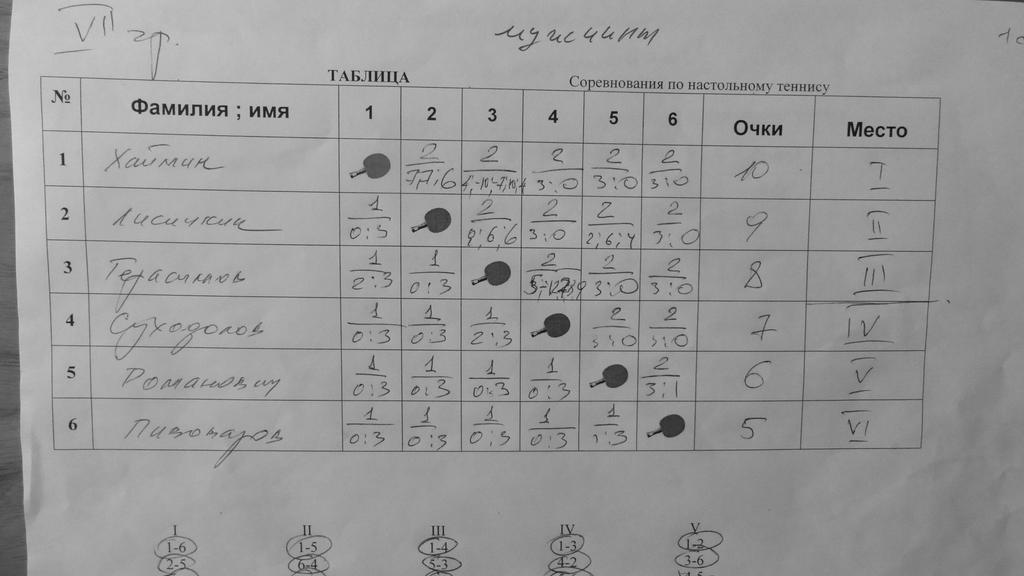 VII гр. мужчины
ТАБЛИЦА Соревнования по настольному теннису
№ Фамилия ; имя 1 2 3 4 5 6 Очки Место
1 Хаймин 2 2 2 2 2 10 I
7,7;6 3:0 3:0 3:0
2 Лисичкин 1 2 2 2 2 9 II
0:3 9;6;6 3:0 2;6;4 3:0
3 Герасимов 1 1 2 2 2 8 III
2:3 0:3 3:0 3:0
4 Суходолов 1 1 1 2 2 7 IV
0:3 0:3 2:3 3:0 3:0
5 Романович 1 1 1 1 2 6 V
0:3 0:3 0:3 0:3 3:1
6 Пивоваров 1 1 1 1 1 5 VI
0:3 0:3 0:3 0:3 1:3
I II III IV V
1-6 1-5 1-4 1-3 1-2
2-5 6-4 5-3 4-2 3-6